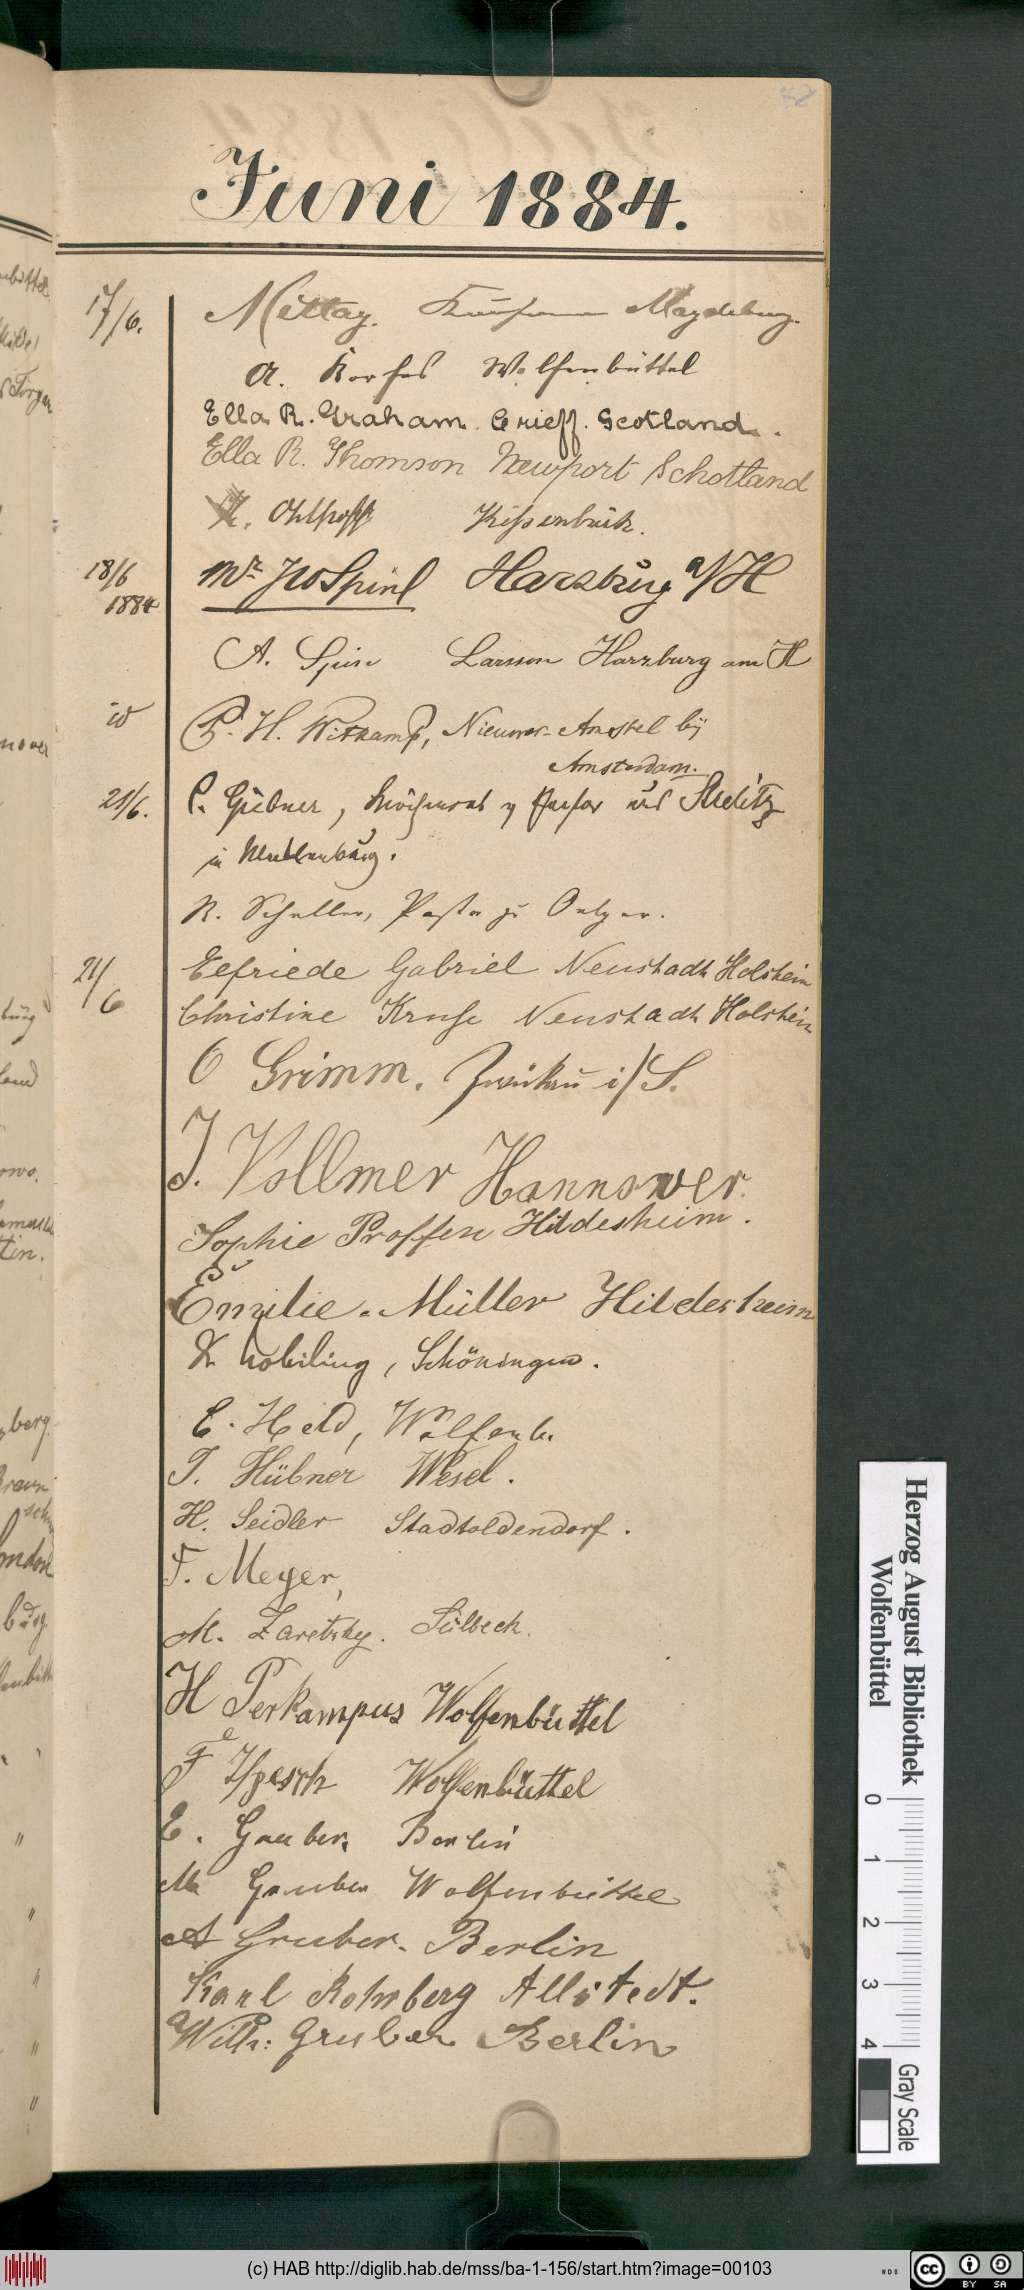 78
Juni 1884.
17/6. Mittag. Kaufmann Magdeburg.
A. Korfes Wolfenbüttel
Ella R. Graham. Crieff. Scotland.
Ella R. Thomson Newport Schotland
H. Ohlhoff Kissenbrück.
18/6 1884 Mr. Harzburg a/H
A. Larsson Harzburg am H
id P. H. Witkamp, Nieuwer-Amstel bij
Amsterdam.
21/6. C. Gübner, aus Strelitz
in Mecklenburg.
R. Schuller, Pastor zu
21/6 Elfriede Gabriel Neustadt Holstein
Christine Kruse Neustadt Holstein
O Grimm. Zwickau i/S.
J. Vollmer Hannover.
Sophie Proffen Hildesheim.
Emilie Müller Hildesheim
Nobiling, Schöningen.
E. Held, Wolfenb.
T. Hübner Wesel.
H. Seidler Stadtoldendorf.
F. Meyer,
M. Zaretzky. Sülbeck.
H Perkampus Wolfenbüttel
F Wolfenbüttel
E. Gruber. Berlin
M Gruber Wolfenbüttel
A Gruber. Berlin
Karl Rohrberg Allstedt.
Wilh: Gruber Berlin
Herzog August Bibliothek
Wolfenbüttel
0 1 2 3 4 Gray Scale
(c) HAB http://diglib.hab.de/mss/ba-1-156/start.htm?image=00103
cc BY SA